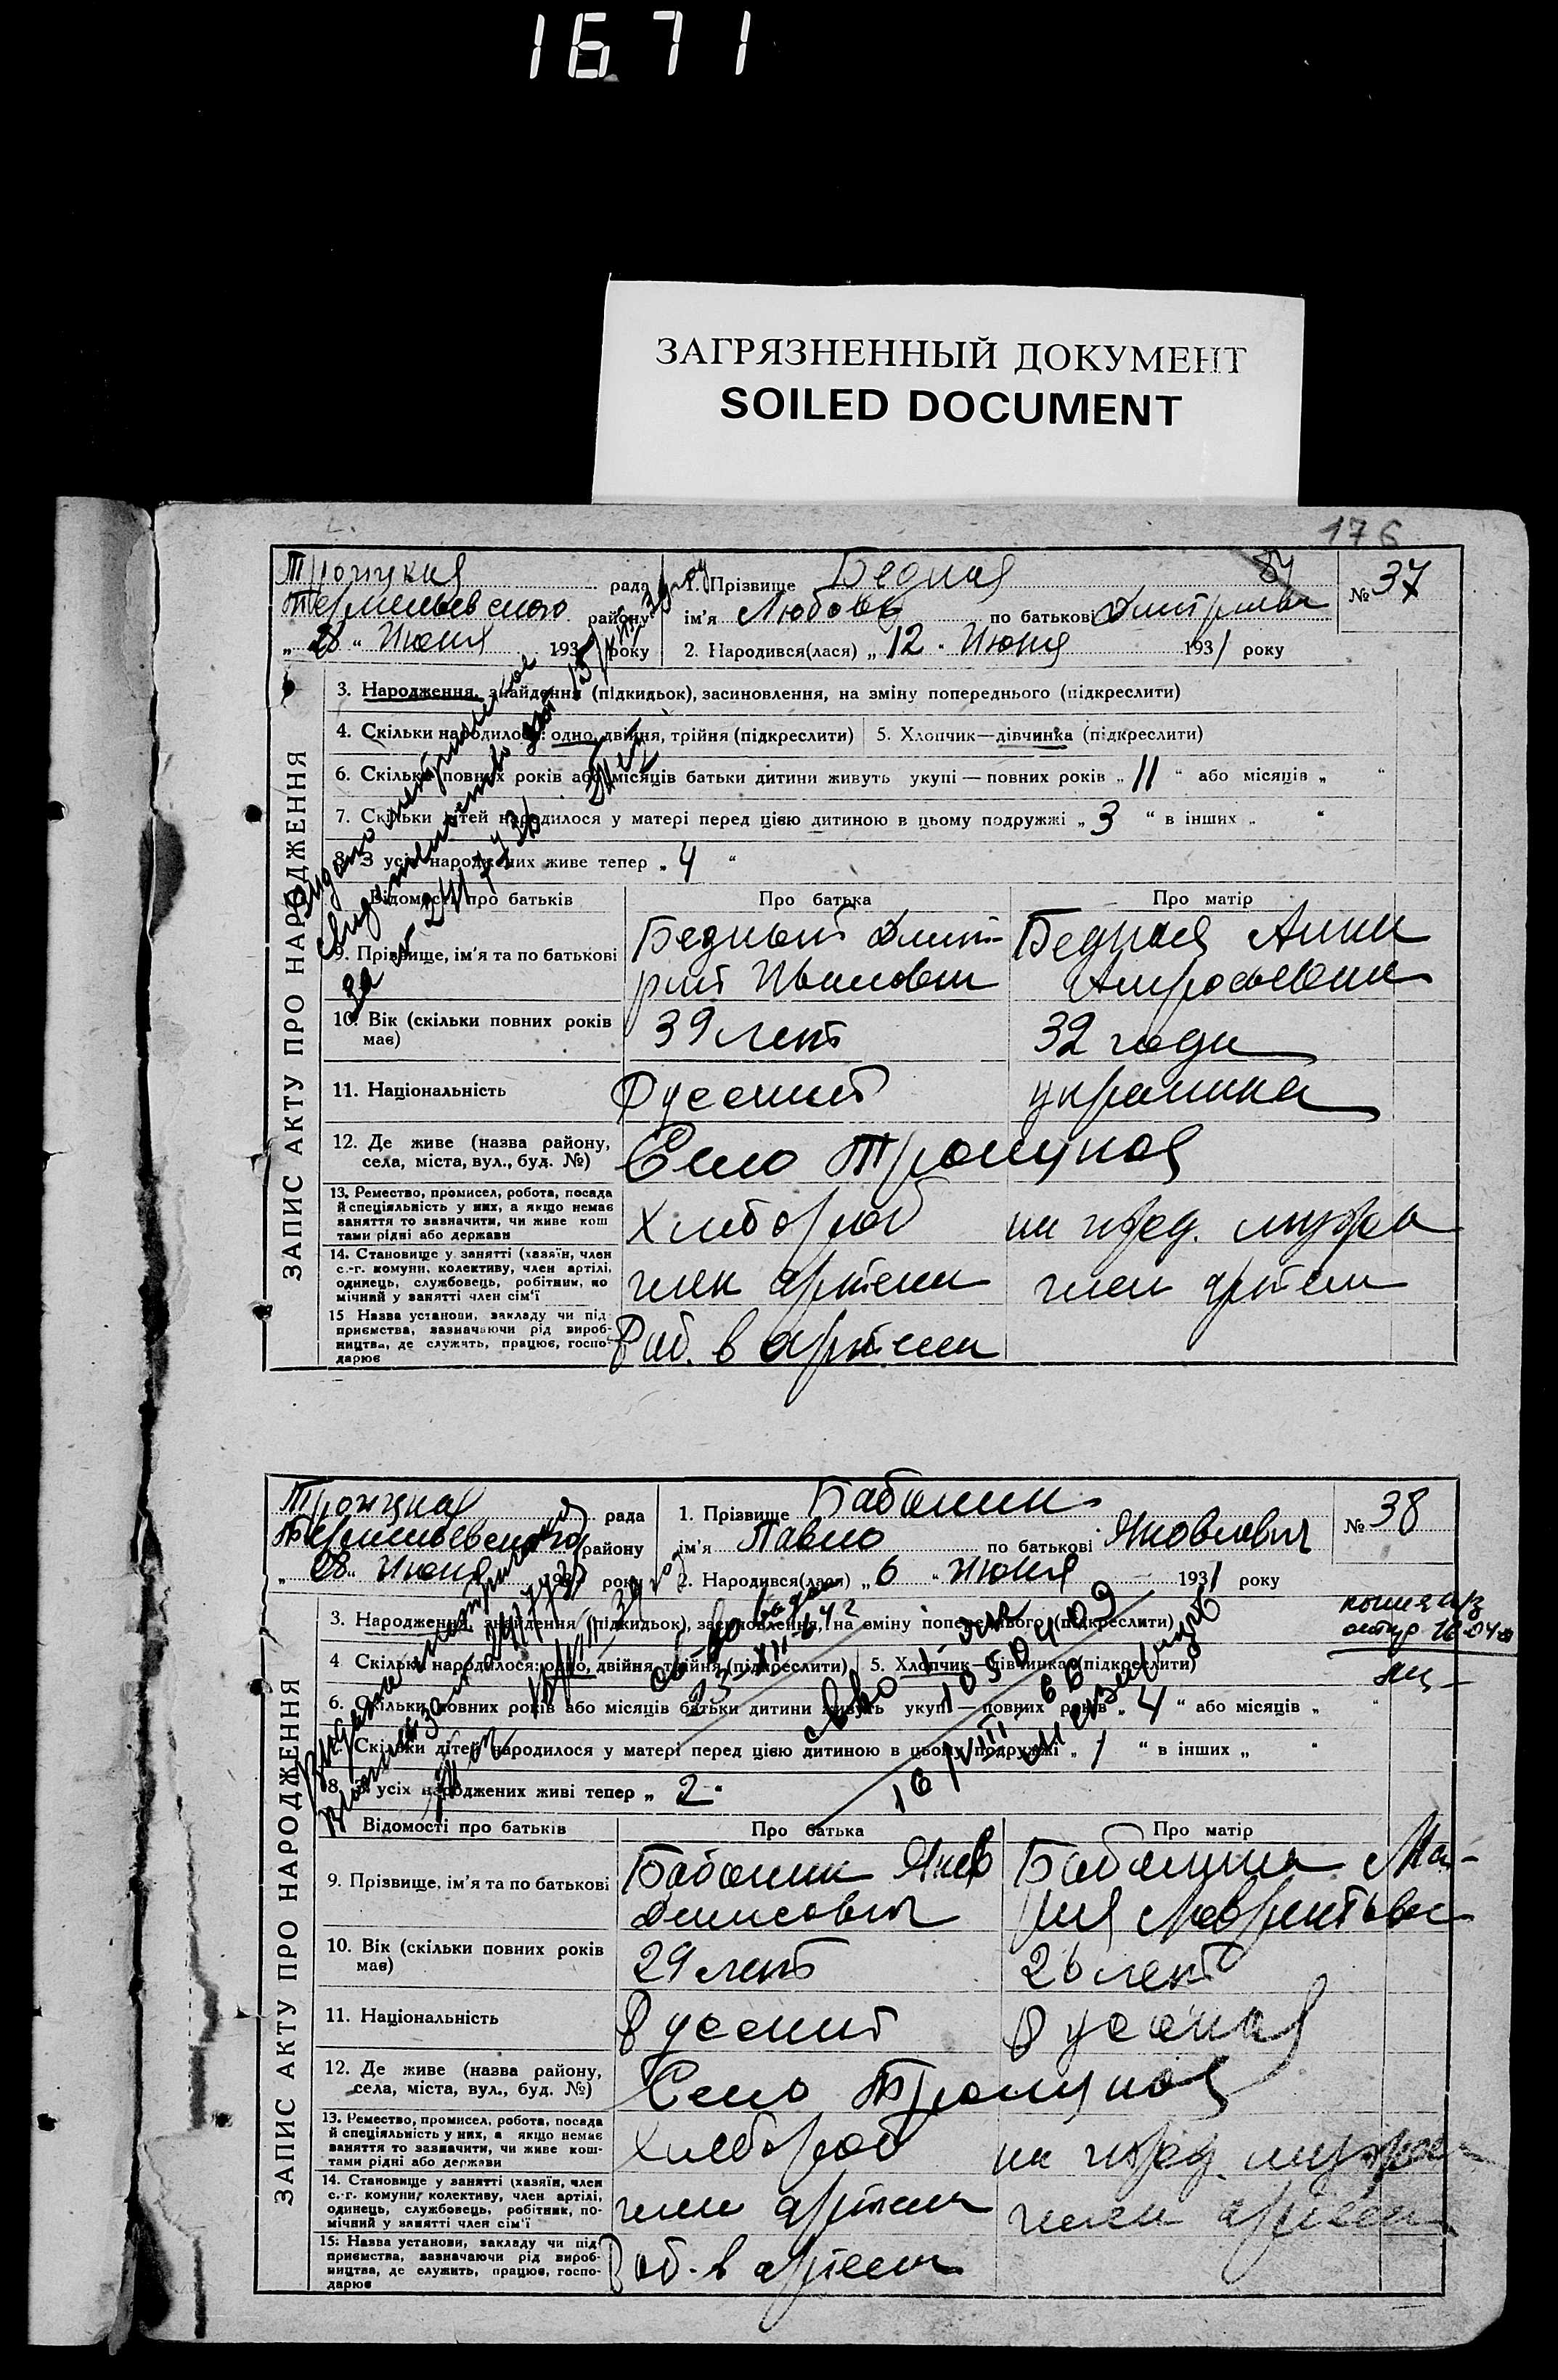 1671
ЗАГРЯЗНЕННЫЙ ДОКУМЕНТ
SOILED DOCUMENT
176
ЗАПИС АКТУ ПРО НАРОДЖЕННЯ
Троицкая рада
району
„28“ Июня 1931 року
1. Прізвище Бедная
ім'я Любовь по батькові
2. Народився(лася) „12. Июня 1931 року
№ 37
3. Народження, знайдення (підкидьок), засиновлення, на зміну попереднього (підкреслити)
4. Скільки народилося: одно, двійня, трійня (підкреслити)
5. Хлопчик—дівчинка (підкреслити)
6. Скільки повних років або місяців батьки дитини живуть укупі — повних років „11“ або місяців „ “
7. Скільки дітей народилося у матері перед цією дитиною в цьому подружжі „3“ в інших „ “
8. З усіх народжених живе тепер „4“
Відомості про батьків
Про батька
Про матір
9. Прізвище, ім'я та по батькові
Бедный Дмит-
рий Иванович
Бедная Анна
10. Вік (скільки повних років
має)
39 лет
32 года
11. Національність
Русский
украинка
12. Де живе (назва району,
села, міста, вул., буд. №)
Село Троицкое
13. Ремество, промисел, робота, посада
й спеціяльність у них, а якщо немає
заняття то зазначити, чи живе кош
тами рідні або держави
Хлебороб
на ижд. мужа
14. Становище у занятті (хазяїн, член
с.-г. комуни, колективу, член артілі,
одинець, службовець, робітник, по
мічний у занятті член сім'ї
член артели
член артели
15 Назва установи, закладу чи під-
приємства, зазначаючи рід вироб-
ництва, де служить, працює, госпо-
дарює
Раб. в артели
ЗАПИС АКТУ ПРО НАРОДЖЕННЯ
Троицкая рада
району
„28“ Июня року
1. Прізвище Бабанин
ім'я Павло по батькові Яковлевич
2. Народився(лася) „6“ Июня 1931 року
№ 38
3. Народження, знайдення (підкидьок), засиновлення, на зміну попереднього (підкреслити)
4 Скільки народилося: одно, двійня, трійня (підкреслити)
5. Хлопчик—дівчинка (підкреслити)
6. Скільки повних років або місяців батьки дитини живуть укупі — повних років „4“ або місяців „ “
7. Скільки дітей народилося у матері перед цією дитиною в цьому подружжі „1“ в інших „ “
8. З усіх народжених живі тепер „2“
Відомості про батьків
Про батька
Про матір
9. Прізвище, ім'я та по батькові
Бабанин Яков
Денисович
Бабанина Ма-
рия
10. Вік (скільки повних років
має)
29 лет
26 лет
11. Національність
Русский
Русская
12. Де живе (назва району,
села, міста, вул., буд. №)
Село Троицкое
13. Ремество, промисел, робота, посада
й спеціяльність у них, а якщо немає
заняття то зазначити, чи живе кош-
тами рідні або держави
Хлебороб
на ижд. мужа
14. Становище у занятті (хазяїн, член
с.-г. комуни, колективу, член артілі,
одинець, службовець, робітник, по-
мічний у занятті член сім'ї
член артели
член артели
15. Назва установи, закладу чи під-
приємства, зазначаючи рід вироб-
ництва, де служить, працює, госпо-
дарює
Раб. в артели